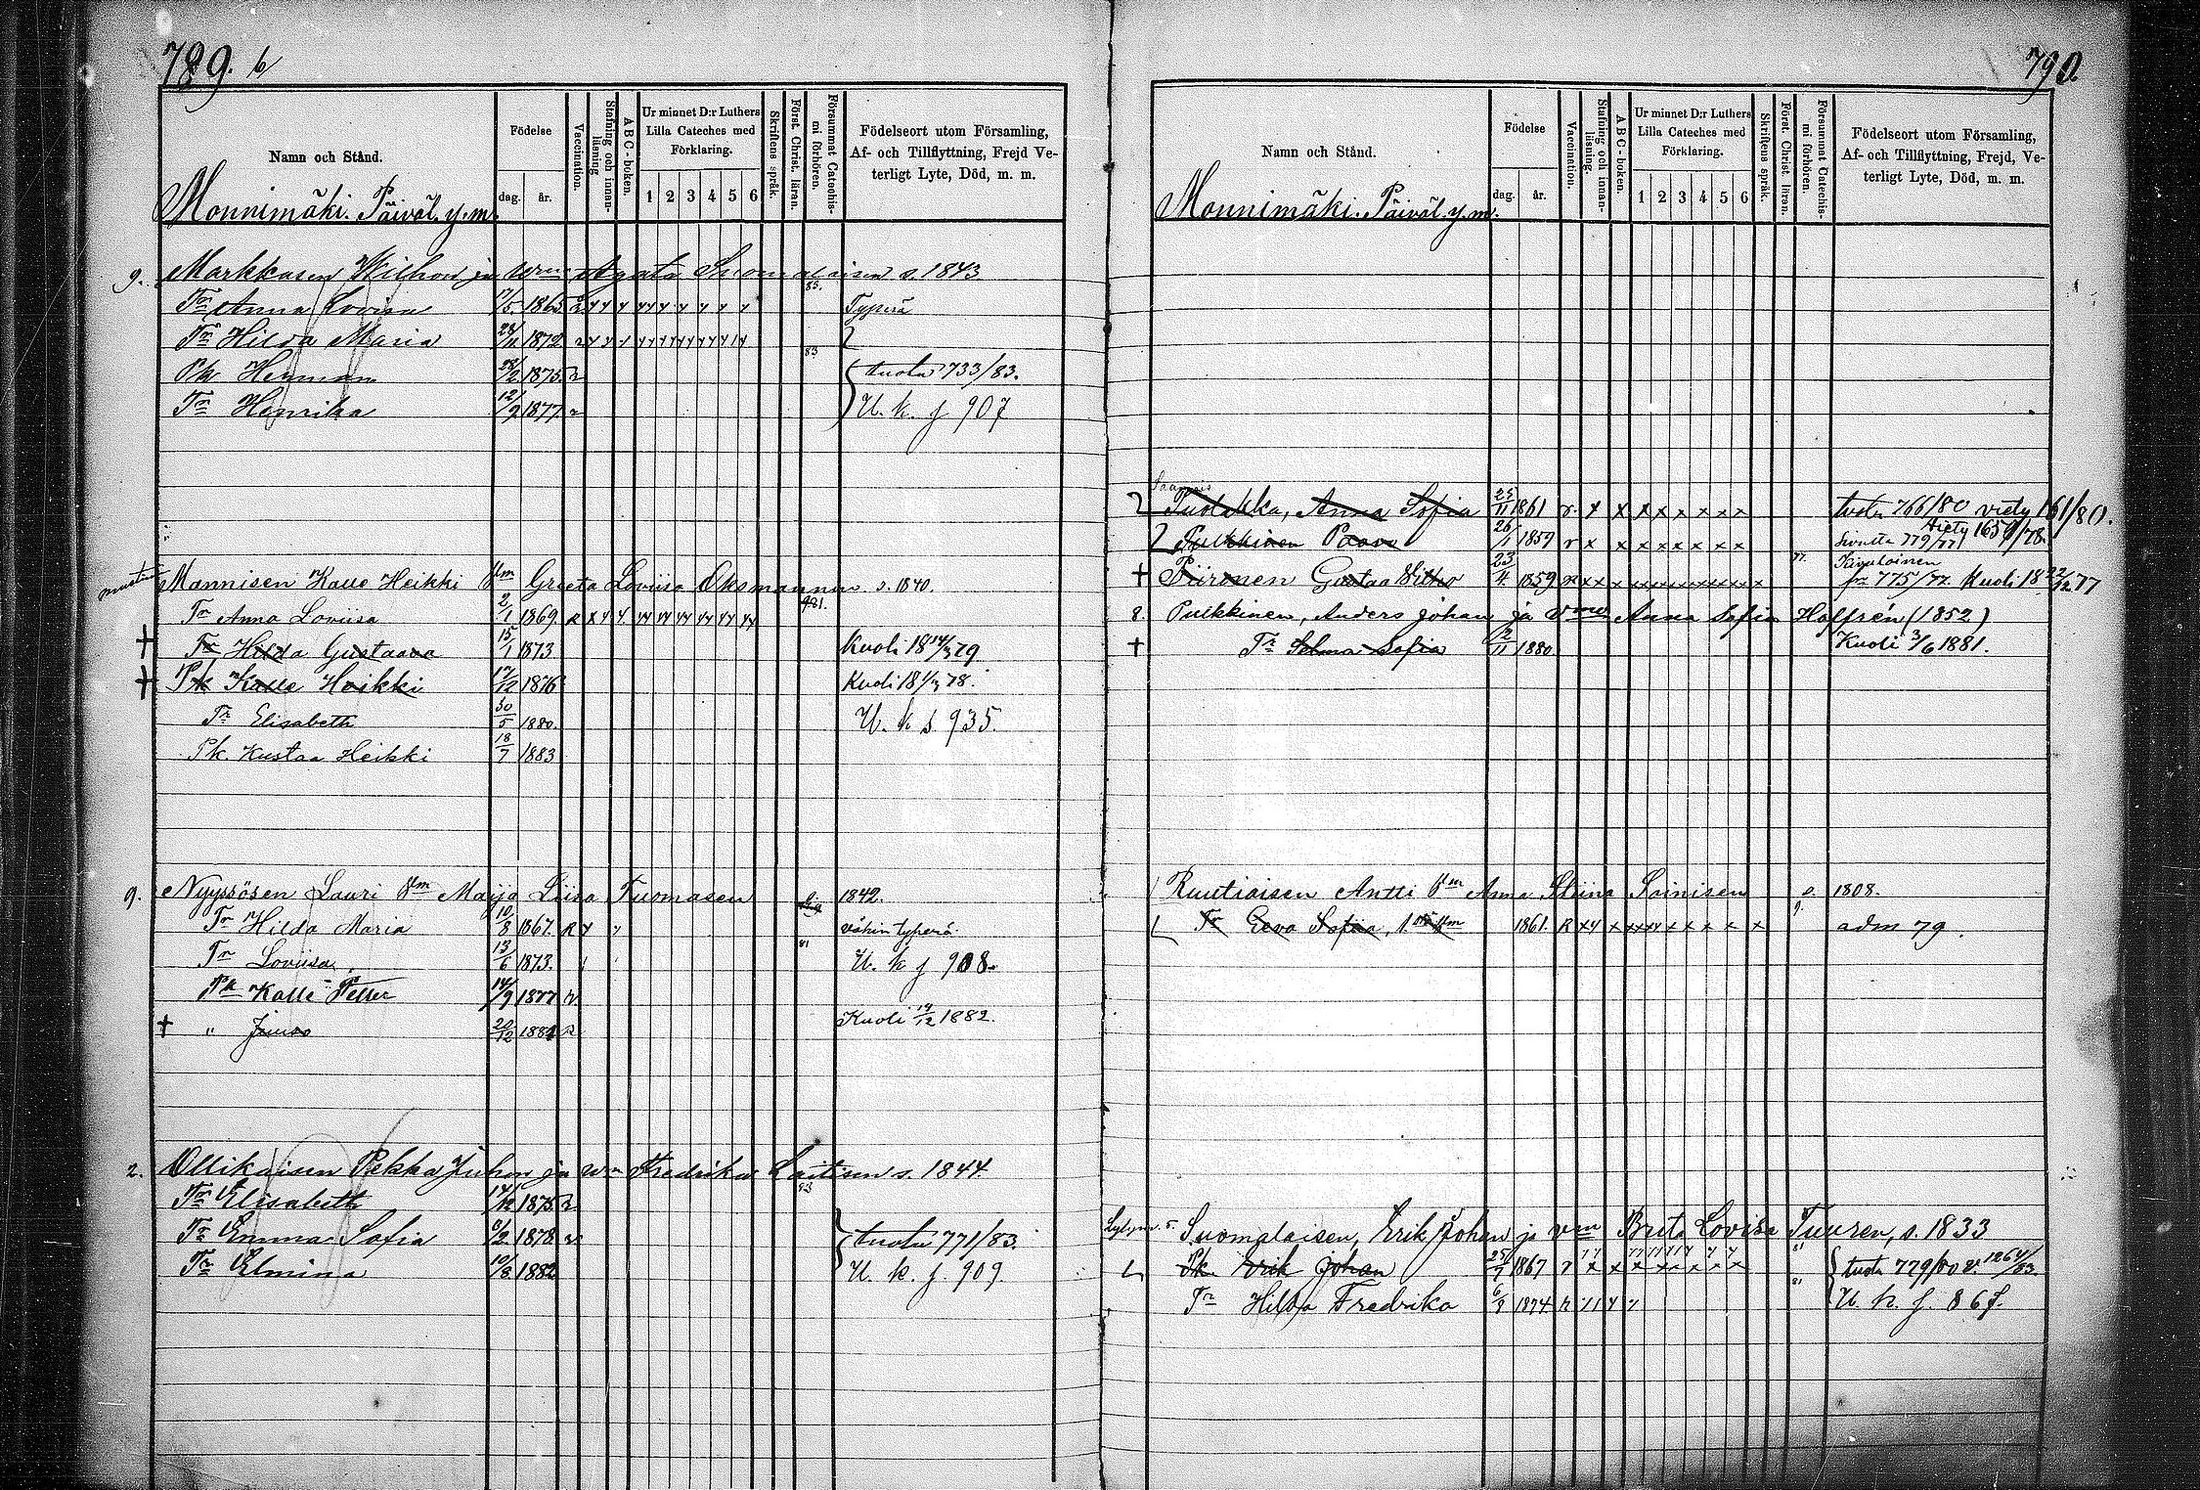 789. b
Namn och Stånd.
Födelse
dag. år.
Vaccination.
Stafning och innanläsning
A B C-boken.
Ur minnet D:r Luthers Lilla Cateches med Förklaring.
1 2 3 4 5 6
Skriftens språk.
Först. Christ. läran.
Försummat Catechismi förhören.
Födelseort utom Församling, Af- och Tillflyttning, Frejd Veterligt Lyte, Död, m. m.
Monnimäki. Päiväl. y. m.
9. Markkasen Wilhon ja Agata Suomalaisen s. 1843
Tr Anna Lovisa 17/5 1865 Typerä
Tr Hilda Maria 1872
Pk Herman 1875
tuotu 733/83.
Tr Henrika 12/2 1877
U. k. f 907
Mannisen Kalle Heikki Vm Greeta Loviisa Oksmannin s. 1840.
Tr Anna Loviisa 2/1 1869
Tr Hilda Gustaava 15/1 1873 Kuoli 18 14/3 79
Pk Kalle Heikki 17/12 1876 Kuoli 18 78.
Tr Elisabeth 30/5 1880. U. k s 935.
Pk. Kustaa Heikki 18/7 1883
9. Nyyssösen Lauri Vm Maija Liisa Tuomasen 1842.
Tr Hilda Maria 10/8 1867. vähin typerä
Tr Loviisa 13/6 1873. U. k f 908.
Pk Kalle Petter 14/9 1877
" Juuso 20/12 Kuoli 19/12 1882.
2. Ollikaisen Pekka Juhon ja Fredrika Laitisen s. 1844.
Tr Elisabeth 1875
Tr Emma Sofia 6/2 1878 tuotu 771/83.
Tr Elmina 10/8 1882 U. k. f. 909.
790.
Namn och Stånd.
Födelse
dag. år.
Vaccination.
Stafning och innanläsning.
A B C-boken.
Ur minnet D:r Luthers Lilla Cateches med Förklaring.
1 2 3 4 5 6
Skriftens språk.
Först. Christ. läran.
Försummat Catechismi förhören.
Födelseort utom Församling, Af- och Tillflyttning, Frejd, Veterligt Lyte, Död, m. m.
Monnimäki. Päiväl. y. m.
Anna Sofia 25/11 1861 tuotu 766/80 viety 161/80.
Pulkkinen Paavo 26/1 1859 779/77 viety 1659/78
Piironen Gustaa Wilho 23/4 1859 775/77. Kuoli 18 22/12 77
8. Pulkkinen, Anders Johan ja Vmo Anna Sofia Halfrén (1852)
Tr Selma Sofia 12/11 1880. Kuoli 3/6 1881.
Ruutiaisen Antti Vm Anna Stiina Soinisen s. 1808.
Tr Eeva Sofia, 1861. adm 79.
5. Suomalaisen, Erik Johan ja Vm Brita Lovisa Tuuren, s. 1833
Pk. Erik Johan 25/7 1867 tuotu 779/80 v. 1264/83.
Tr Hilda Fredrika 1874 U. k. f. 867.